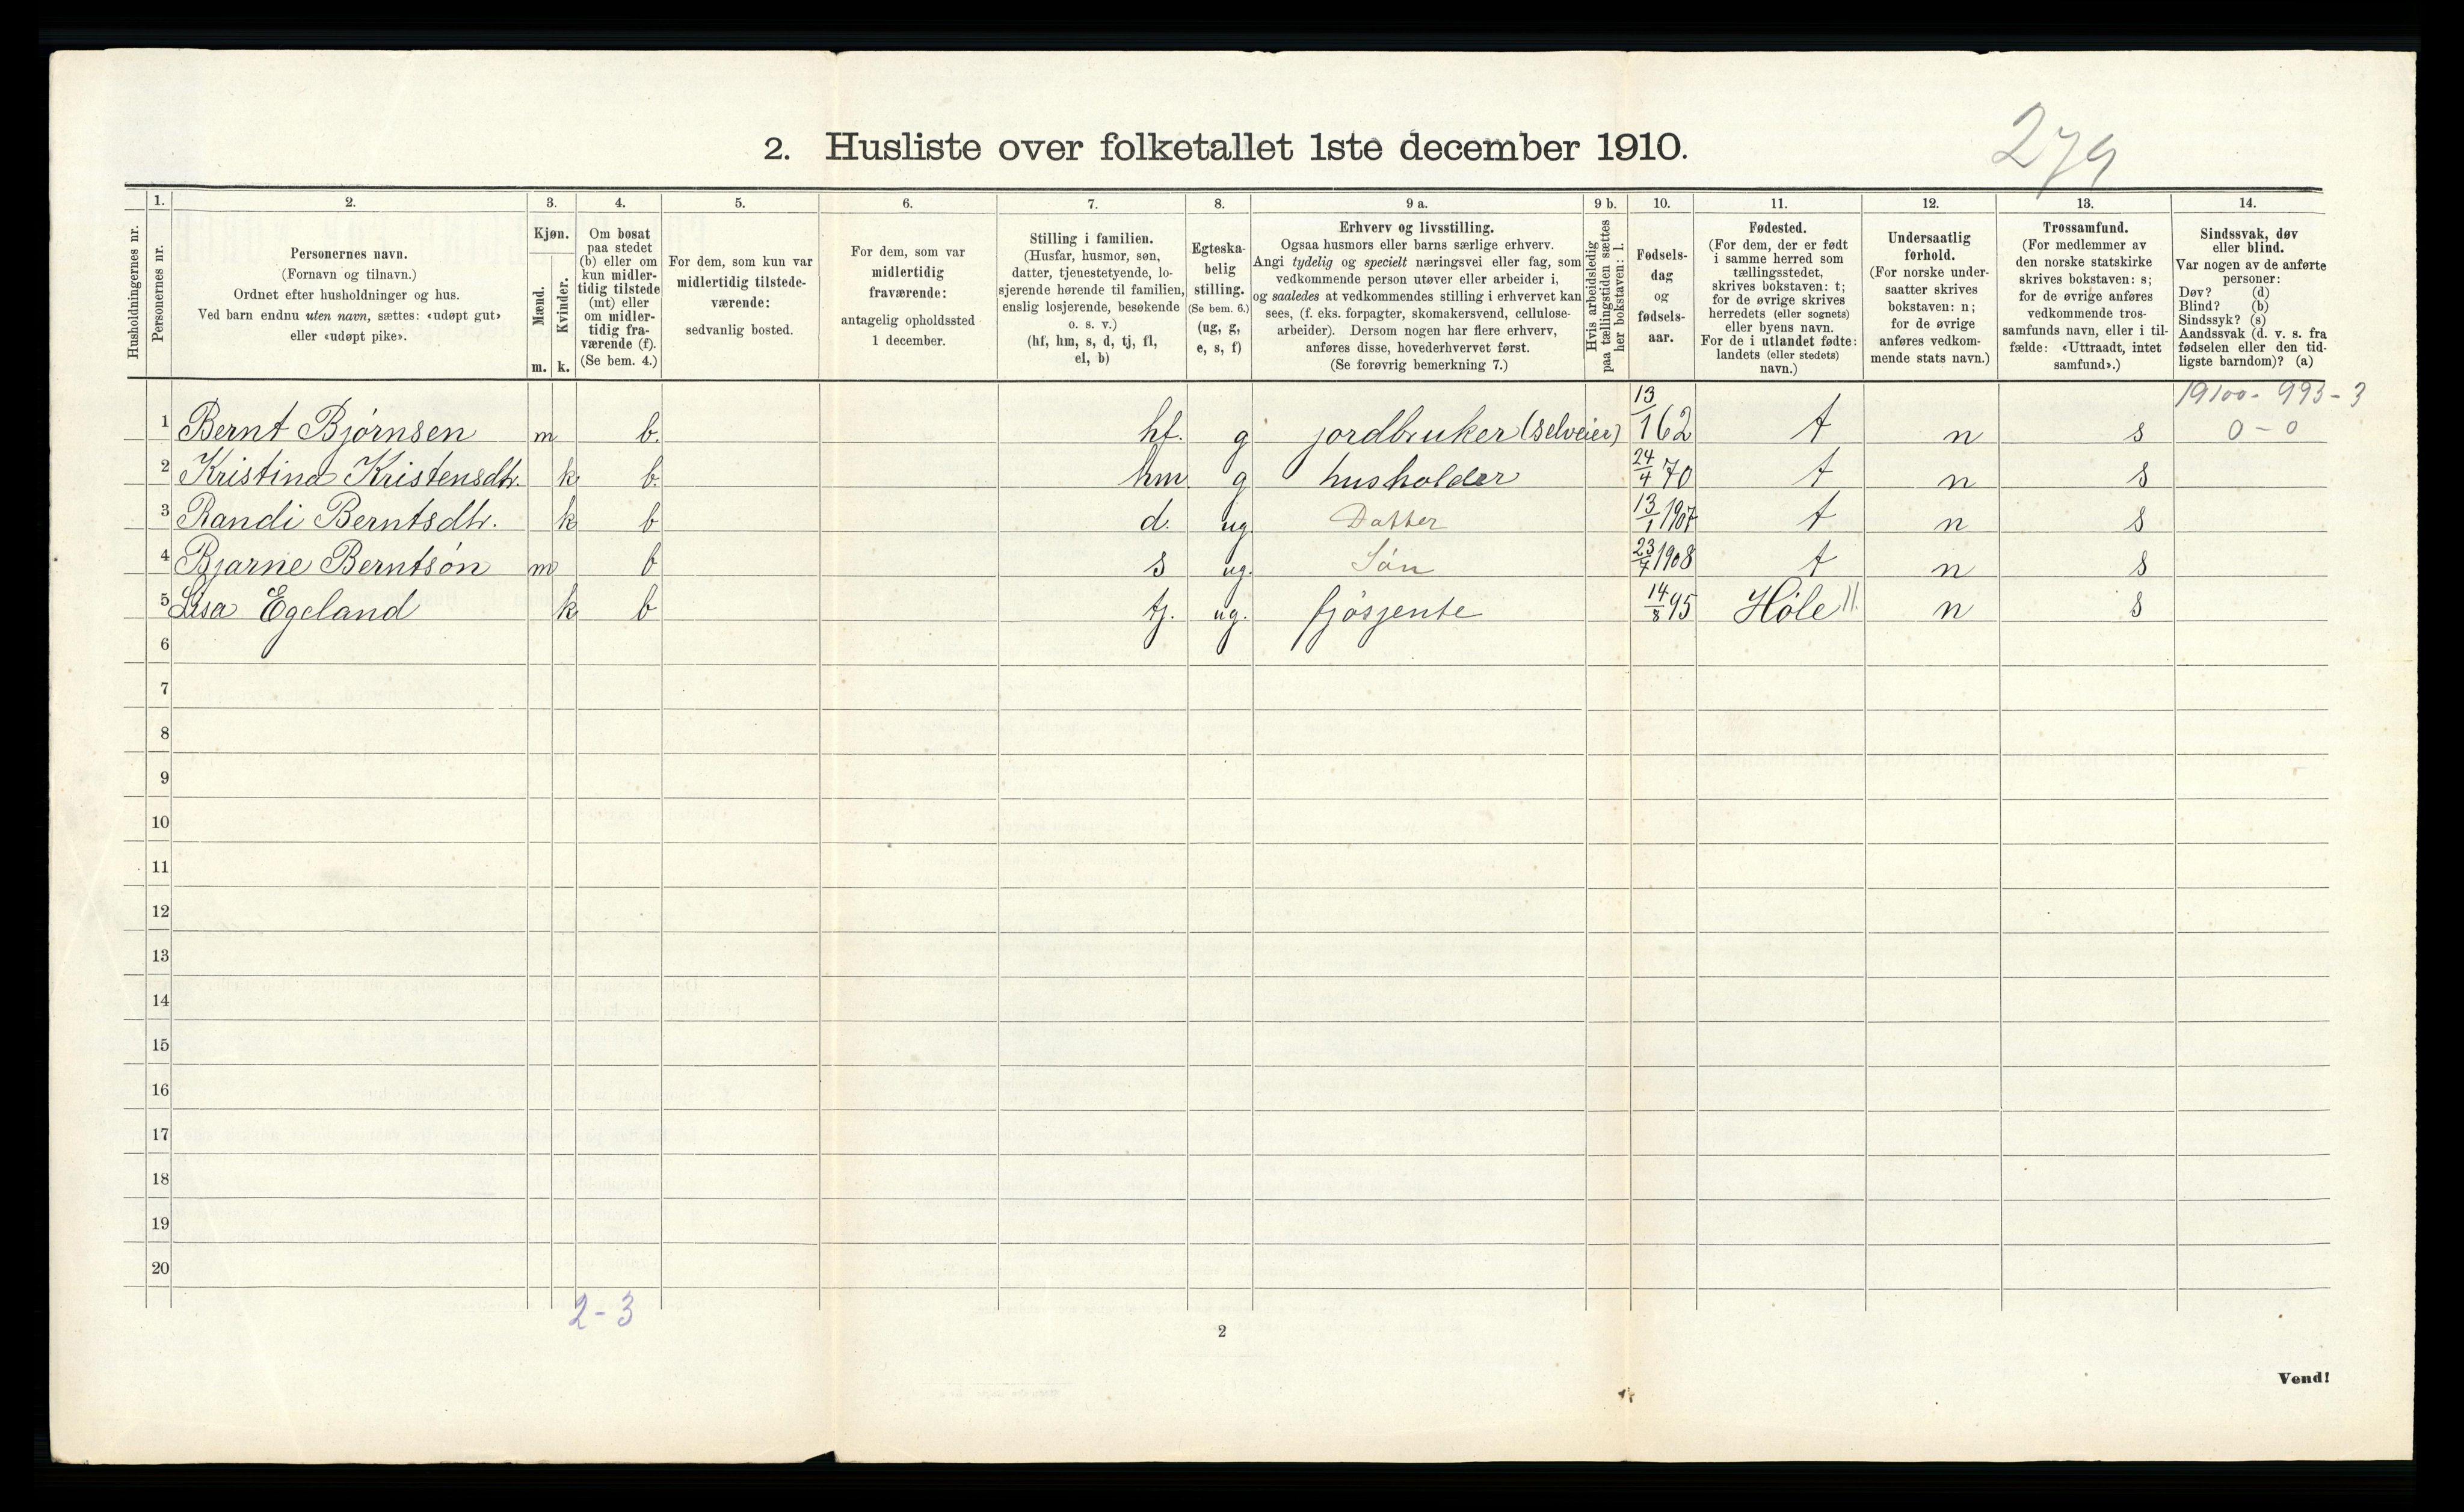 2. Husliste over folketallet 1ste december 1910.
279
1. 2. 3. 4. 5. 6. 7. 8. 9 a. 9 b. 10. 11. 12. 13. 14.
Husholdningernes nr.
Personernes nr.
Personernes navn.
(Fornavn og tilnavn.)
Ordnet efter husholdninger og hus.
Ved barn endnu uten navn, sættes: «udøpt gut»
eller «udøpt pike».
Kjøn.
Mænd.
Kvinder.
m. k.
Om bosat
paa stedet
(b) eller om
kun midler-
tidig tilstede
(mt) eller
om midler-
tidig fra-
værende (f).
(Se bem. 4.)
For dem, som kun var
midlertidig tilstede-
værende:
sedvanlig bosted.
For dem, som var
midlertidig
fraværende:
antagelig opholdssted
1 december.
Stilling i familien.
(Husfar, husmor, søn,
datter, tjenestetyende, lo-
sjerende hørende til familien,
enslig losjerende, besøkende
o. s. v.)
(hf, hm, s, d, tj, fl,
el, b)
Egteska-
belig
stilling.
(Se bem. 6.)
(ug, g,
e, s, f)
Erhverv og livsstilling.
Ogsaa husmors eller barns særlige erhverv.
Angi tydelig og specielt næringsvei eller fag, som
vedkommende person utøver eller arbeider i,
og saaledes at vedkommendes stilling i erhvervet kan
sees, (f. eks. forpagter, skomakersvend, cellulose-
arbeider). Dersom nogen har flere erhverv,
anføres disse, hovederhvervet først.
(Se forøvrig bemerkning 7.)
Hvis arbeidsledig
paa tællingstiden sættes
her bokstaven: l.
Fødsels-
dag
og
fødsels-
aar.
Fødested.
(For dem, der er født
i samme herred som
tællingsstedet,
skrives bokstaven: t;
for de øvrige skrives
herredets (eller sognets)
eller byens navn.
For de i utlandet fødte:
landets (eller stedets)
navn.)
Undersaatlig
forhold.
(For norske under-
saatter skrives
bokstaven: n;
for de øvrige
anføres vedkom-
mende stats navn.)
Trossamfund.
(For medlemmer av
den norske statskirke
skrives bokstaven: s;
for de øvrige anføres
vedkommende tros-
samfunds navn, eller i til-
fælde: «Uttraadt, intet
samfund».)
Sindssvak, døv
eller blind.
Var nogen av de anførte
personer:
Døv? (d)
Blind? (b)
Sindssyk? (s)
Aandssvak (d. v. s. fra
fødselen eller den tid-
ligste barndom)? (a)
19100 - 993 - 3
1 Bernt Bjørnsen m b. hf. g jordbruker (selveier) 13/1 62 t n s 0 - 0
2 Kristina Kristensdtr. k b. hm g husholder 24/4 70 t n s
3 Randi Berntsdtr. k b d. ug Datter 13/1 1907 t n s
4 Bjarne Berntsøn m b s ug. Søn 23/7 1908 t n s
5 Lisa Egeland k b tj. ug. fjøsjente 14/8 95 Høle 11. n s
6
7
8
9
10
11
12
13
14
15
16
17
18
19
20
2 - 3
2
Vend!